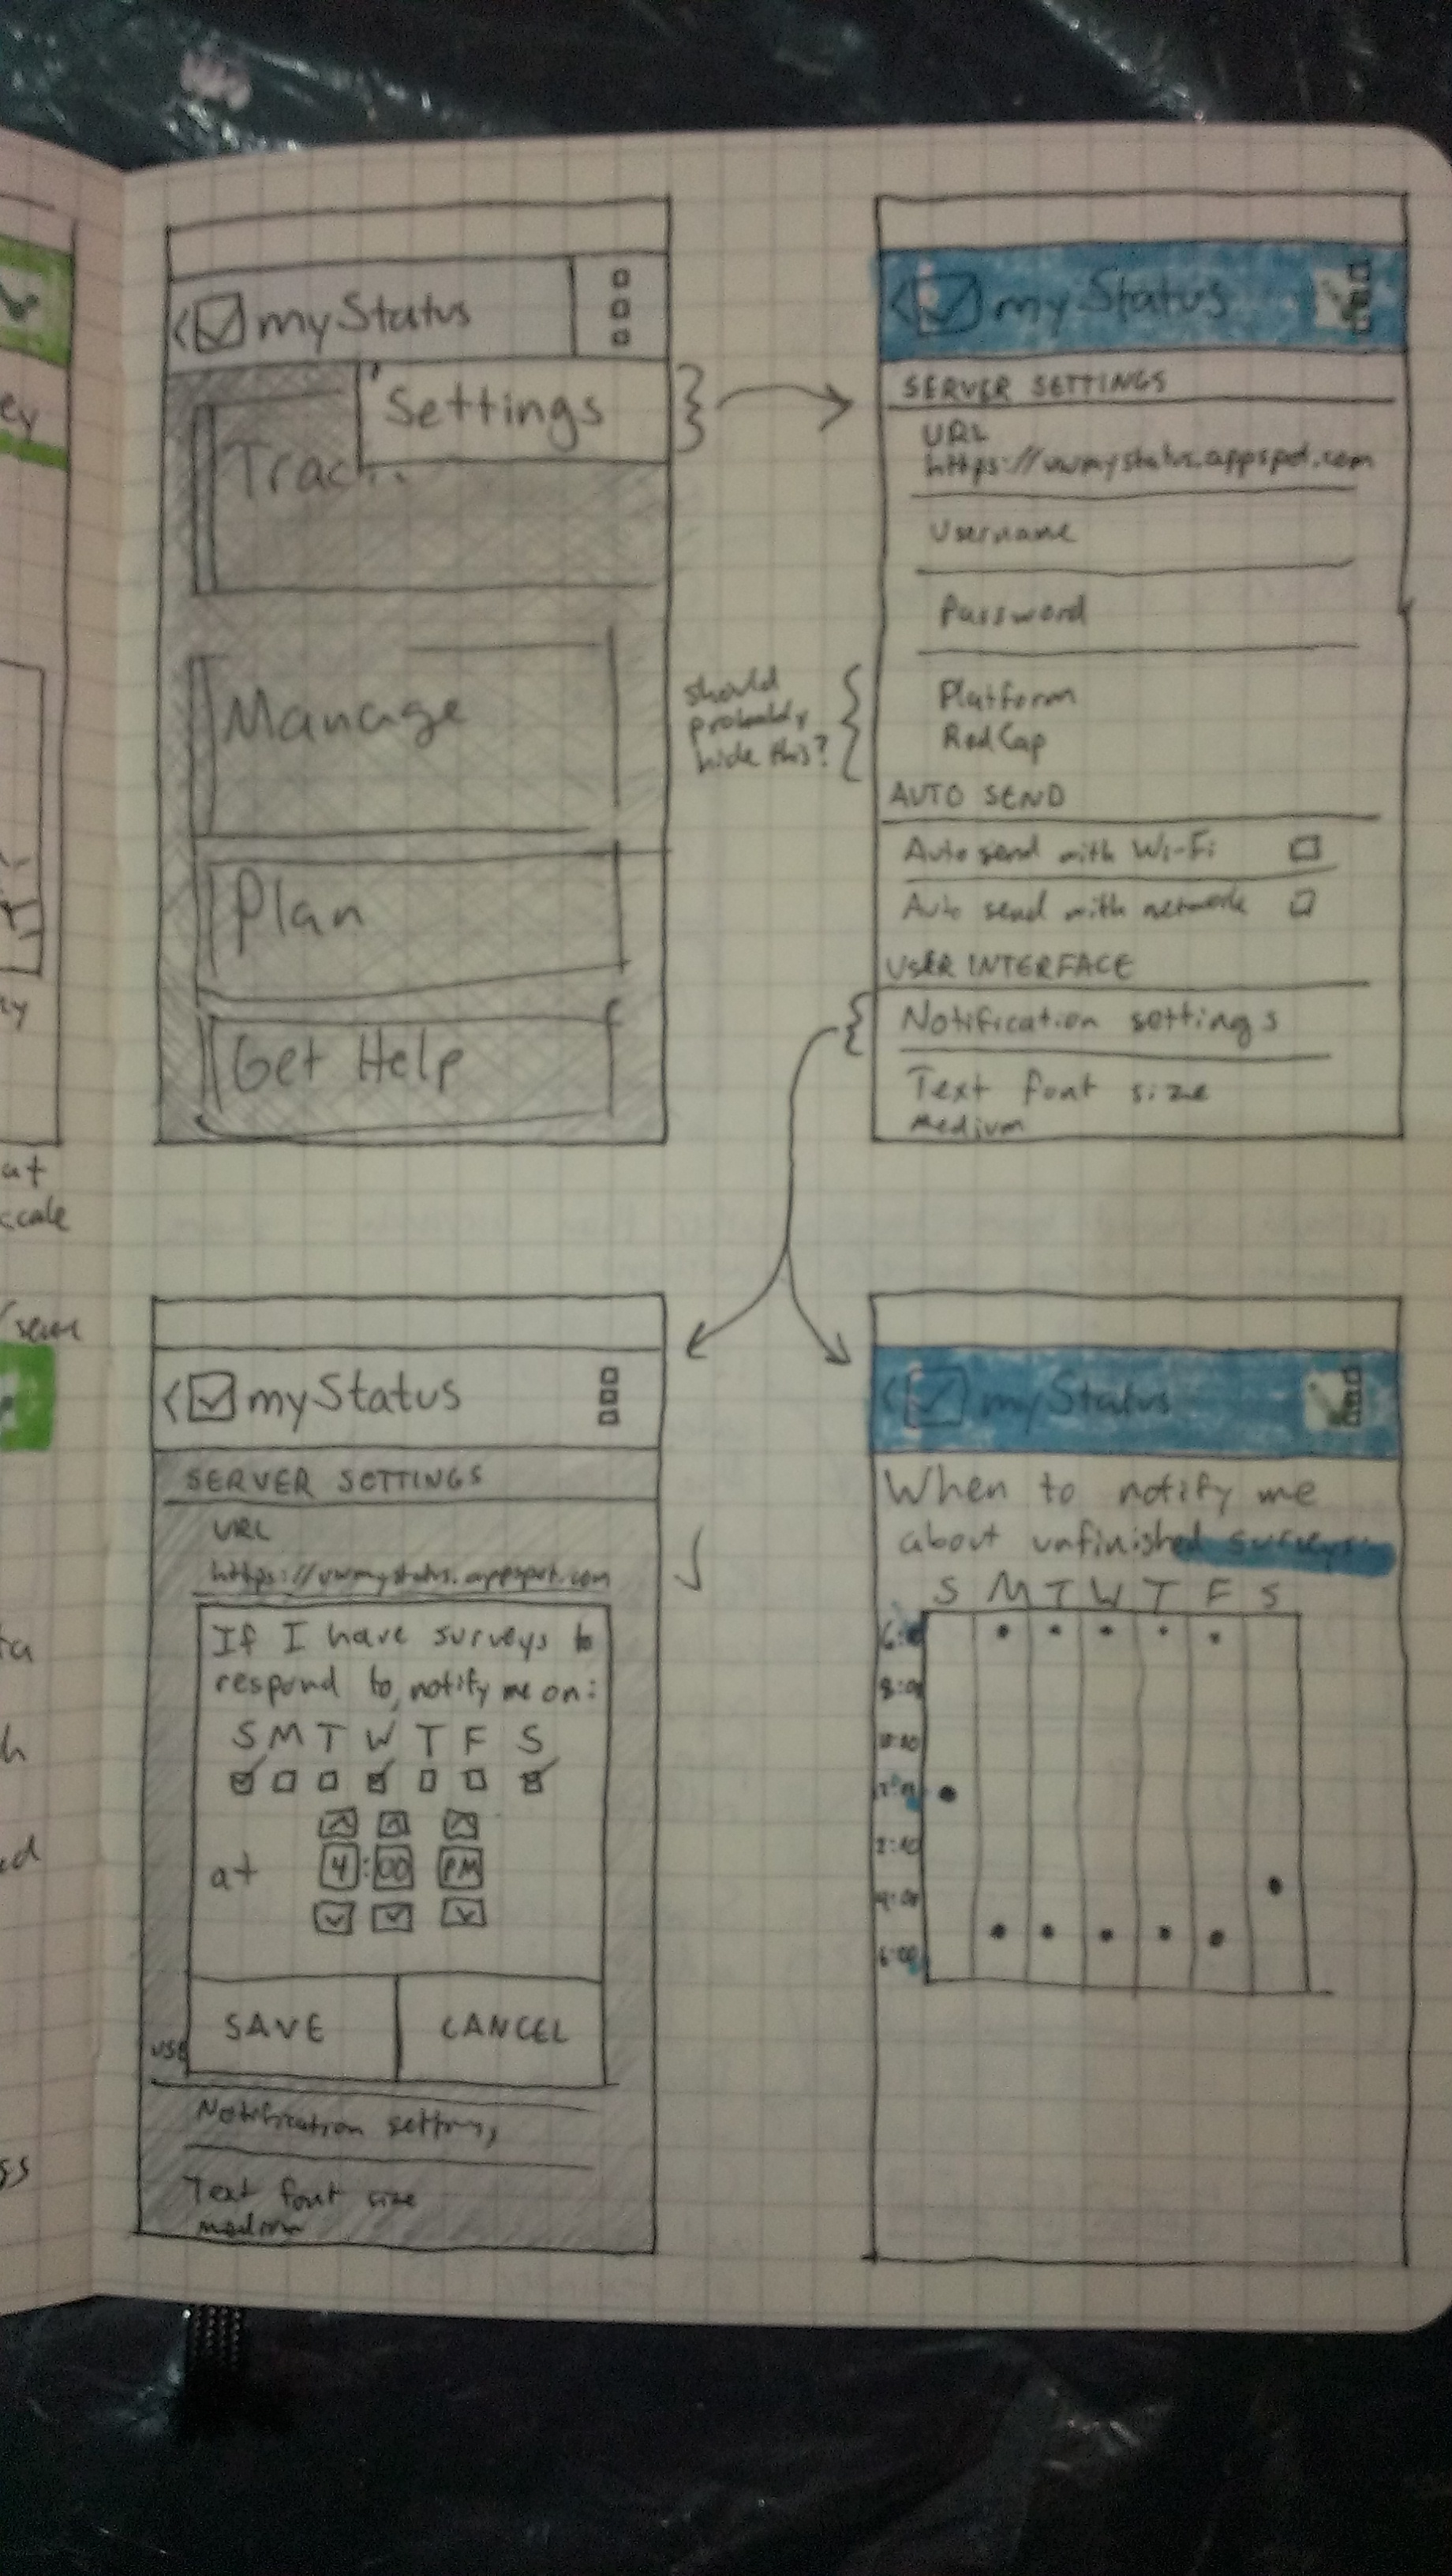 myStatus
Settings
Trac
Manage
Plan
Get Help
myStatus
SERVER SETTINGS
URL
https://uwmystatus.appspot.com
Username
Password
should
probably
hide this?
Platform
RedCap
AUTO SEND
Auto send with Wi-Fi
Auto send with network
USER INTERFACE
Notification settings
Text font size
Medium
myStatus
SERVER SETTINGS
URL
https://uwmystatus.appspot.com
If I have surveys to
respond to, notify me on:
S M T W T F S
at 4:00 PM
SAVE CANCEL
USE
Notification settings
Text font size
medium
myStatus
When to notify me
about unfinished surveys:
S M T W T F S
8:00
10:00
4:00
6:00
ey
at
scale